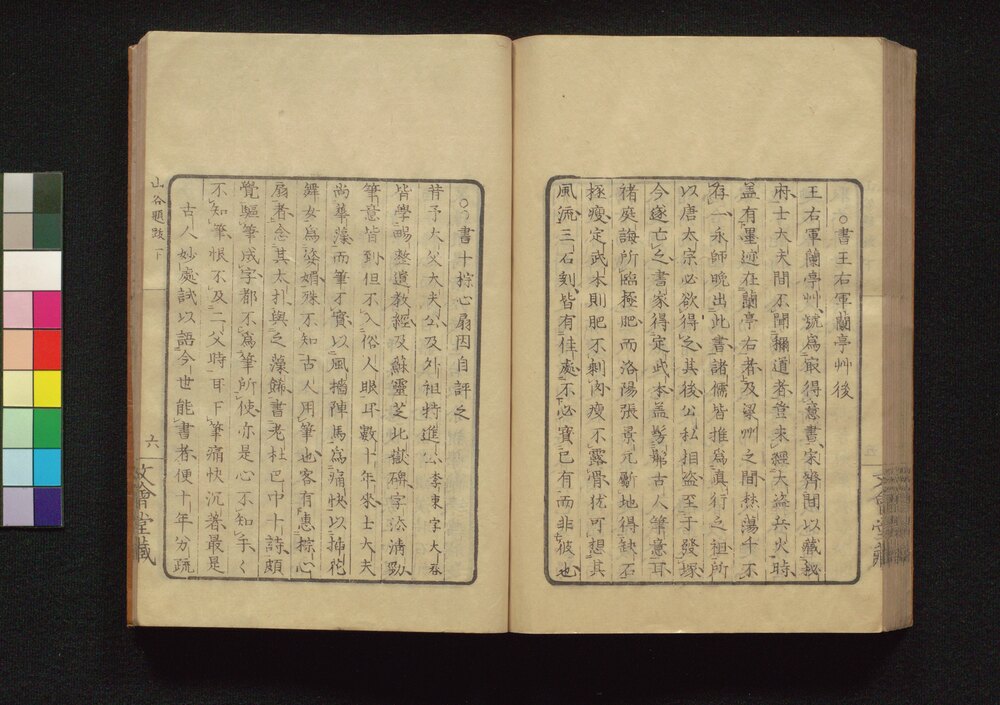 〇書王右軍蘭亭艸後
王右軍蘭亭艸號為㝡得意書宋齊間以藏祕
府士大夫間不聞稱道者豈未經大盜兵火時
盖有墨迹在蘭亭右者及梁州之間焚蕩千不
存一永師晚出此書諸儒皆推為真行之祖所
以唐太宗必欲得之其後公私相盜至于發塚
今遂亡之書家得定武本盖髣髴古人筆意耳
褚庭誨所臨極肥而洛陽張景元斸地得缺石
極瘦定武本則肥不剩肉瘦不露骨犹可想其
風流三石刻皆有佳處不必寳已有而非彼也
〇書十棕心扇因自評之
昔予大父大夫公及外祖特進公李東字大春
皆學暢整遺教經及蘇靈芝北嶽碑字法清勁
筆意皆到但不入俗人眼耳數十年來士大夫
尚華藻而筆不實以風檣陣馬為痛快以插花
舞女為姿媚殊不知古人用筆也客有惠棕心
扇者念其太朴與之藻飾書老杜巴中十詩頗
覺驅筆成字都不為筆所使亦是心不知手〻
不知筆恨不及二父時耳下筆痛快沉著最是
古人妙處試以語今世能書者便十年分疏
山谷題跋 下
六
文會堂藏